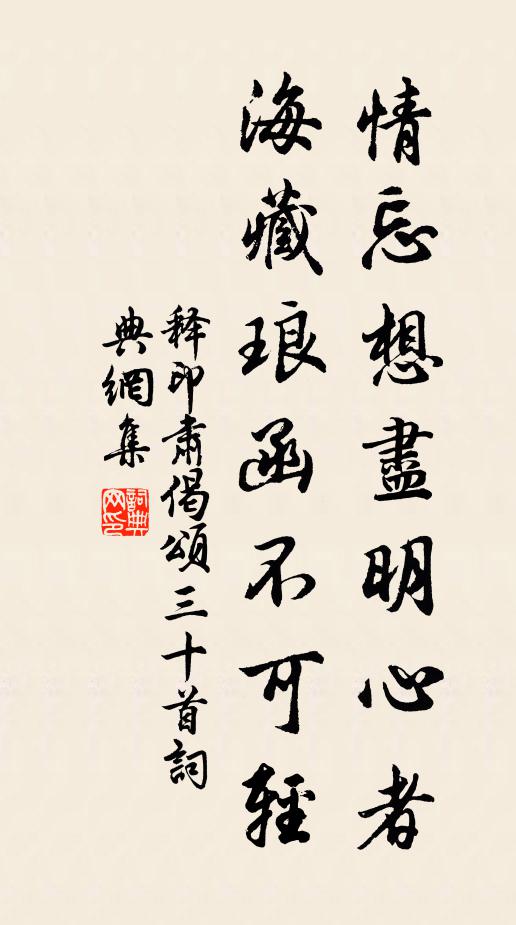 情忘想盡明心者
海藏琅函不可輕
释印肃偈頌三十首詞
典網集
詞典网印